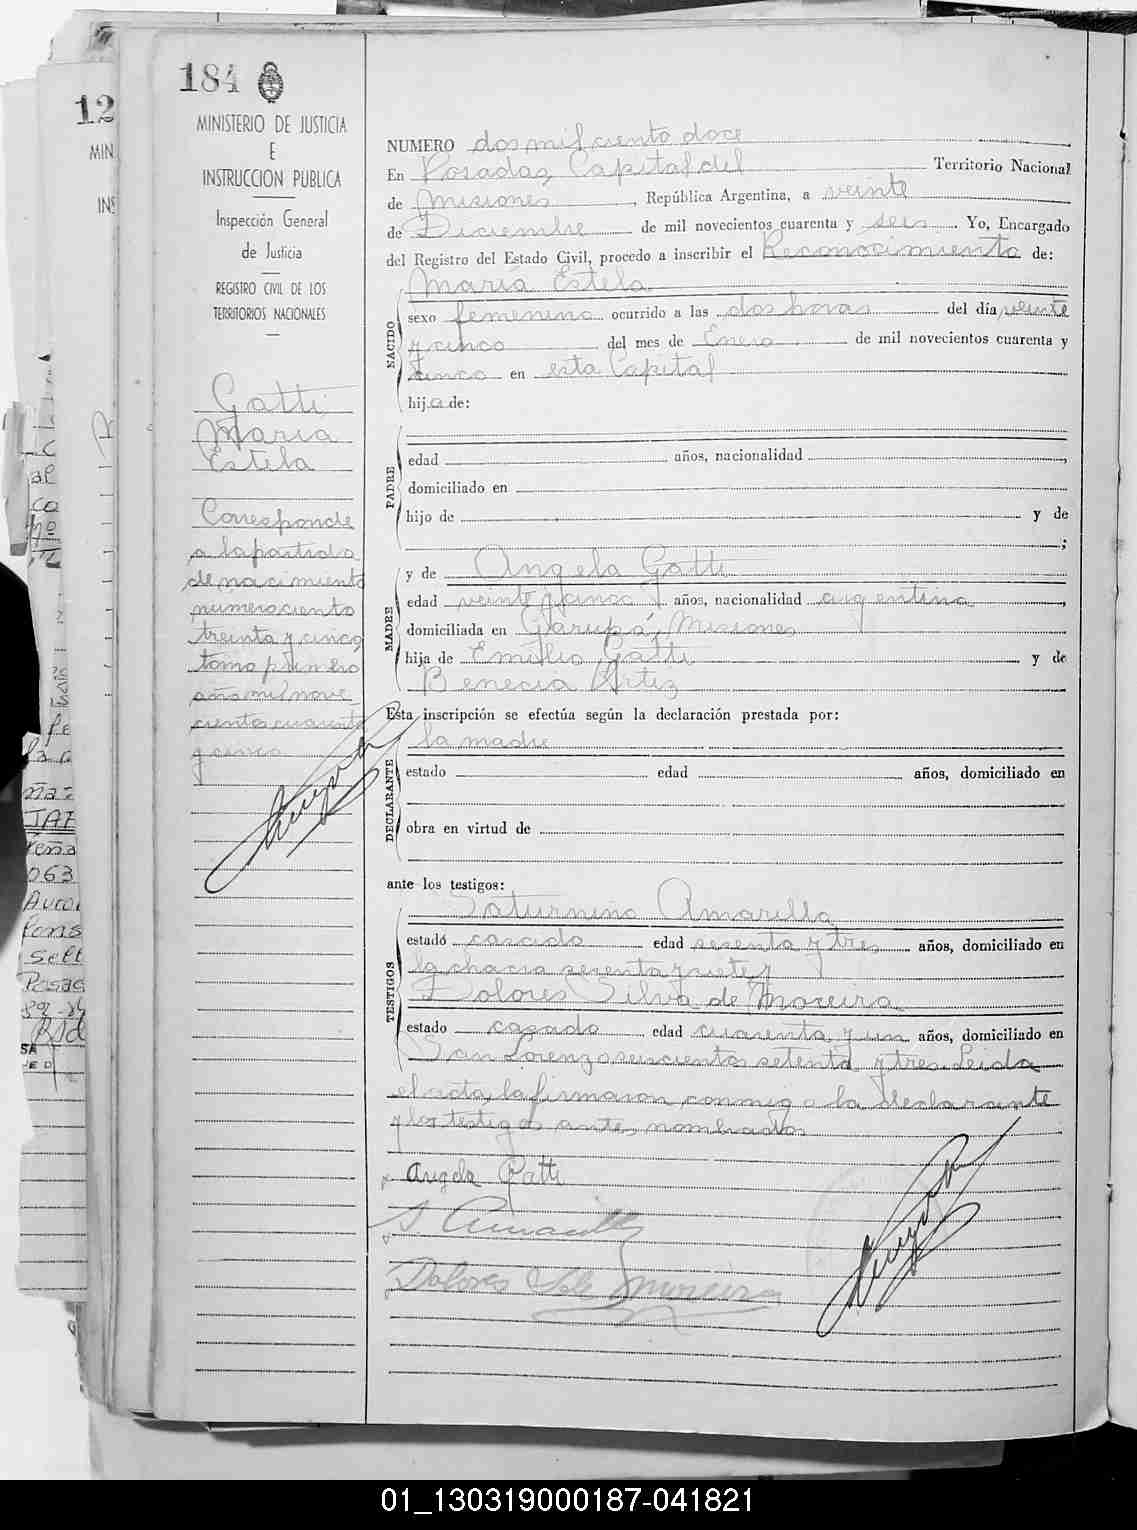 184
MINISTERIO DE JUSTICIA
E
INSTRUCCION PUBLICA
Inspección General
de Justicia
REGISTRO CIVIL DE LOS
TERRITORIOS NACIONALES
Gatti
María
Estela
Corresponde
a la partida
de nacimiento
número ciento
treinta y cinco
tomo primero
año mil nove
cientos cuarenta
y cinco
NUMERO dos mil ciento doce
En Posadas, Capital del Territorio Nacional
de Misiones, República Argentina, a veinte
de Diciembre de mil novecientos cuarenta y seis. Yo, Encargado
del Registro del Estado Civil, procedo a inscribir el Reconocimiento de:
María Estela
NACIDO
sexo femenino ocurrido a las dos horas del día veinte
y cinco del mes de Enero de mil novecientos cuarenta y
cinco en esta Capital
hija de:
PADRE
edad años, nacionalidad ,
domiciliado en
hijo de y de
;
MADRE
y de Angela Gatti
edad veinte y cinco años, nacionalidad argentina,
domiciliada en Garupá, Misiones
hija de Emilio Gatti y de
Benecia Ortiz
Esta inscripción se efectúa según la declaración prestada por:
la madre
DECLARANTE
estado edad años, domiciliado en
obra en virtud de
ante los testigos:
TESTIGOS
Saturnino Amarilla
estado casado edad sesenta y tres años, domiciliado en
la chacra sesenta y siete y
Dolores Silva de Moreira
estado casado edad cuarenta y un años, domiciliado en
San Lorenzo seiscientos setenta y tres. Leida
el acta, la firmaron conmigo la declarante
y los testigos antes nombrados
Angela Gatti
S Amarilla
Dolores S de Moreira
12
MIN
INS
063
01_130319000187-041821